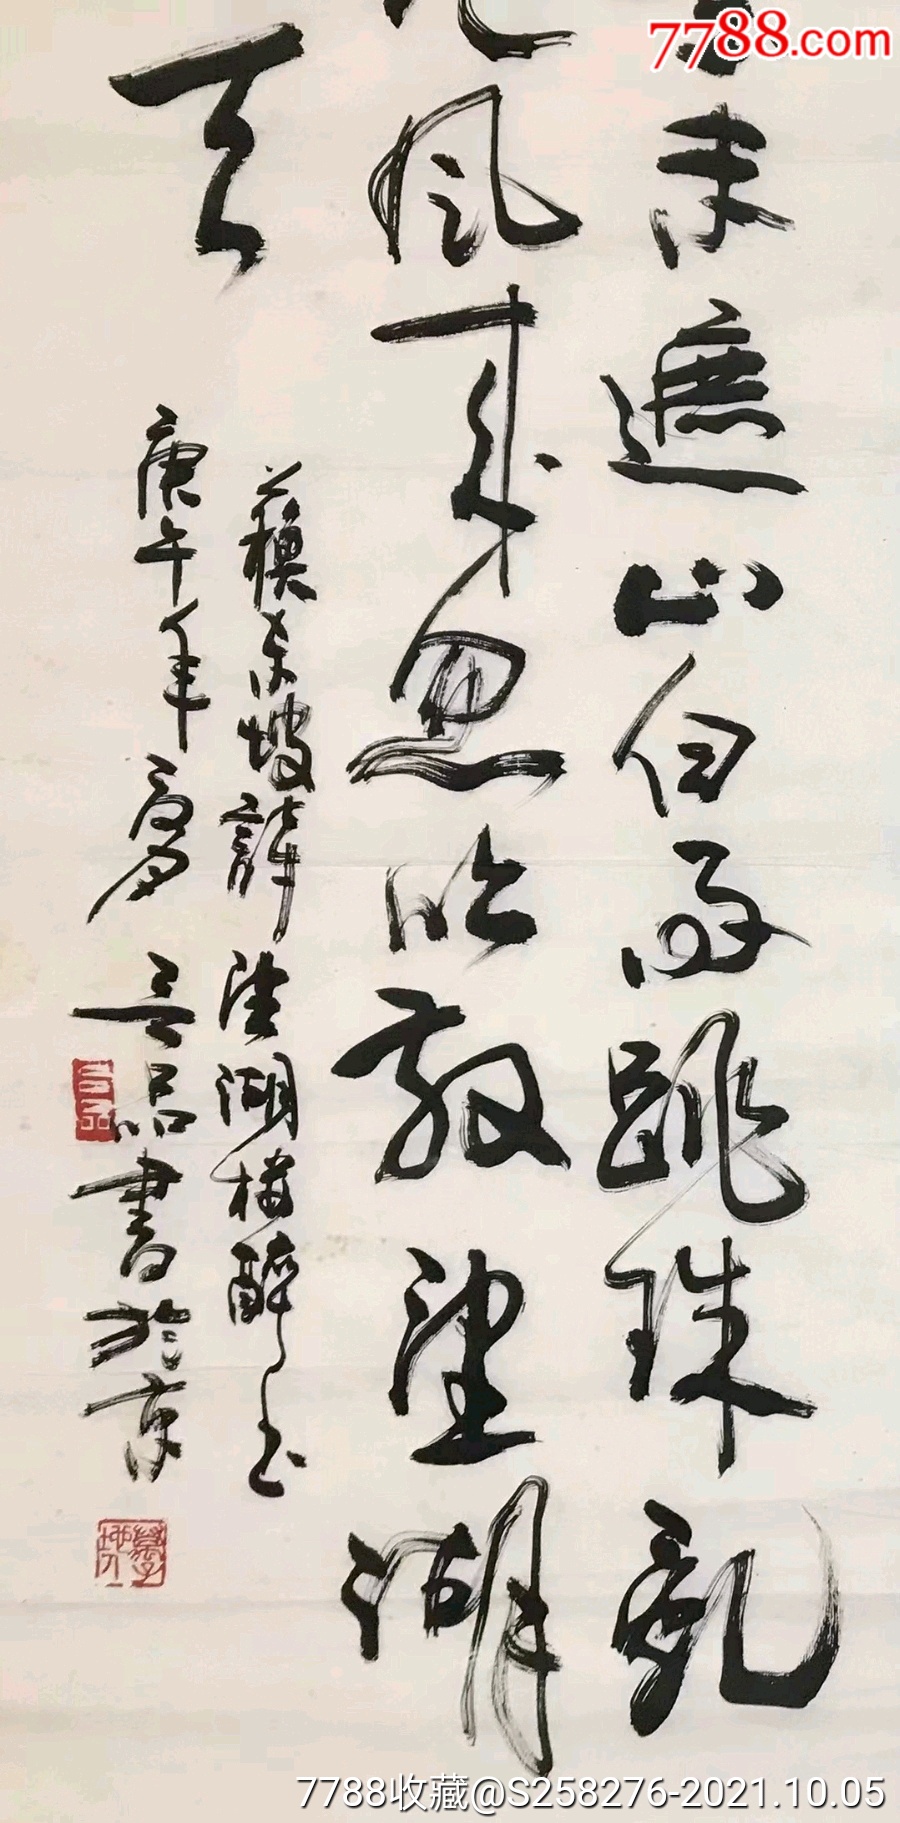 7788.com
未遮山白雨跳珠亂
風來忽吹散望湖
天
蘇東坡詩望湖樓醉書
庚午年夏 品書於京
7788收藏@S258276-2021.10.05